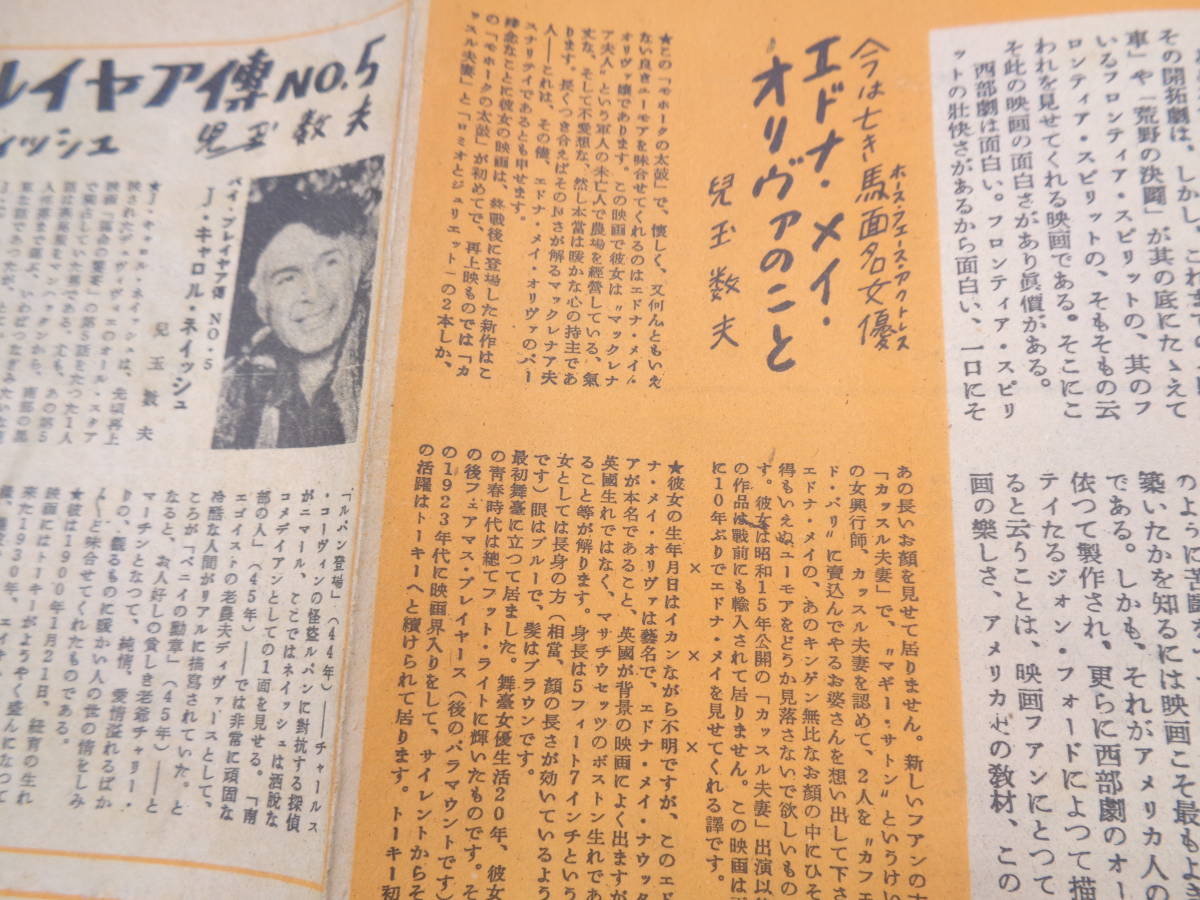 その開拓劇は、しかし、これまで
車」や「荒野の決闘」が其の底にたゝえて
いるフロンティア・スピリットの、其のフ
ロンティア・スピリットの、そもそもの云
われを見せてくれる映画である。そこにこ
そ此の映画の面白さがあり眞價がある。
西部劇は面白い。フロンティア・スピリ
ットの壯快さがあるから面白い、一口にそ
のように苦闘を
築いたかを知るには映画こそ最もよき
である。しかも、それがアメリカ人の
依つて製作され、更らに西部劇のオー
ティたるジョン・フォードによつて描
ると云うことは、映画フアンにとつて
画の樂しさ、アメリカ史の教材、この
今は亡き馬面名女優
ホース・フェース・アクトレス
エドナ・メイ・
オリヴァのこと
兒玉数夫
★この「モホークの太鼓」で、懷しく、又何んともいえ
ない良きユーモアを味合せてくれるのはエドナ・メイ・
オリヴァ嬢であります。この映画で彼女は〝マックレナ
ア夫人〟という軍人の未亡人で農場を經營している、氣
丈な、そして不愛想な、然し本當は暖かな心の持主であ
ります。長くつき合えばそのよさが解るマックレナア夫
人――これは、その儘、エドナ・メイ・オリヴァのパー
スナリテイであるとも申せます。
殘念なことに彼女の映画は、終戰後に登場した新作はこ
の「モホークの太鼓」が初めてで、再上映ものでは「カ
ッスル夫妻」と「ロミオとジュリエット」の2本しか、
あの長いお顔を見せて居りません。新しいフアンの方
「カッスル夫妻」で、〝マギー・サトン〟というけい
の女興行師、カッスル夫妻を認めて、2人を〝カフェ
ド・パリ〟に賣込んでやるお婆さんを想い出して下さ
エドナ・メイの、あのキンゲン無比なお顔の中にひそ
得もいえぬユーモアをどうか見落さないで欲しいもの
す。彼女は昭和15年公開の「カッスル夫妻」出演以
の作品は戰前にも輸入されて居りません。この映画は
に10年ぶりでエドナ・メイを見せてくれる譯です。
× × ×
★彼女の生年月日はイカンながら不明ですが、このエド
ナ・メイ・オリヴァは藝名で、エドナ・メイ・ナウッタ
アが本名であること、英國が背景の映画によく出ますが
英國生れではなく、マサチウセッツのボストン生れであ
ること等が解ります。身長は5フィート7インチという
女としては長身の方(相當、顔の長さが効いているよう
です)眼はブルーで、髪はブラウンです。
最初舞臺に立つて居ました。舞臺女優生活20年、彼女
の靑春時代は總てフット・ライトに輝いたものです。そ
の後フェアマス・プレイヤース(後のパラマウントです)
の1923年代に映画界入りをして、サイレントからそ
の活躍はトーキーへと續けられて居ります。トーキー初
ルイヤア傳 NO.5
ィッシュ 兒玉数夫
バイ・プレイヤア傳 NO 5
J・キャロル・ネイッシュ
兒玉数夫
★J・キャロル・ネイッシュは、先頃再上
「ルパン登場」(44年)――チャールス
・コーヴィンの怪盗ルパンに對抗する探偵
がニマール、ここではネイッシュは洒脱な
コメデイアンとしての1面を見せる。「南
部の人」(45年)――では非常に頑固な
エゴイストの老農夫ディヴァースとして、
冷酷な人間がリアルに描寫されていた。と
ころが「ベニイの勲章」(45年)――と
なると、お人好しの貧しき老爺チャリー・
マーチンとなつて、純情、愛情溢れるばか
りの、觀るものに暖かい人の世の情をしみ
〲と味合せてくれたものである。
★彼は1900年1月21日、紐育の生れ
映画にはトーキーがようやく盛んになつて
来た1930年、